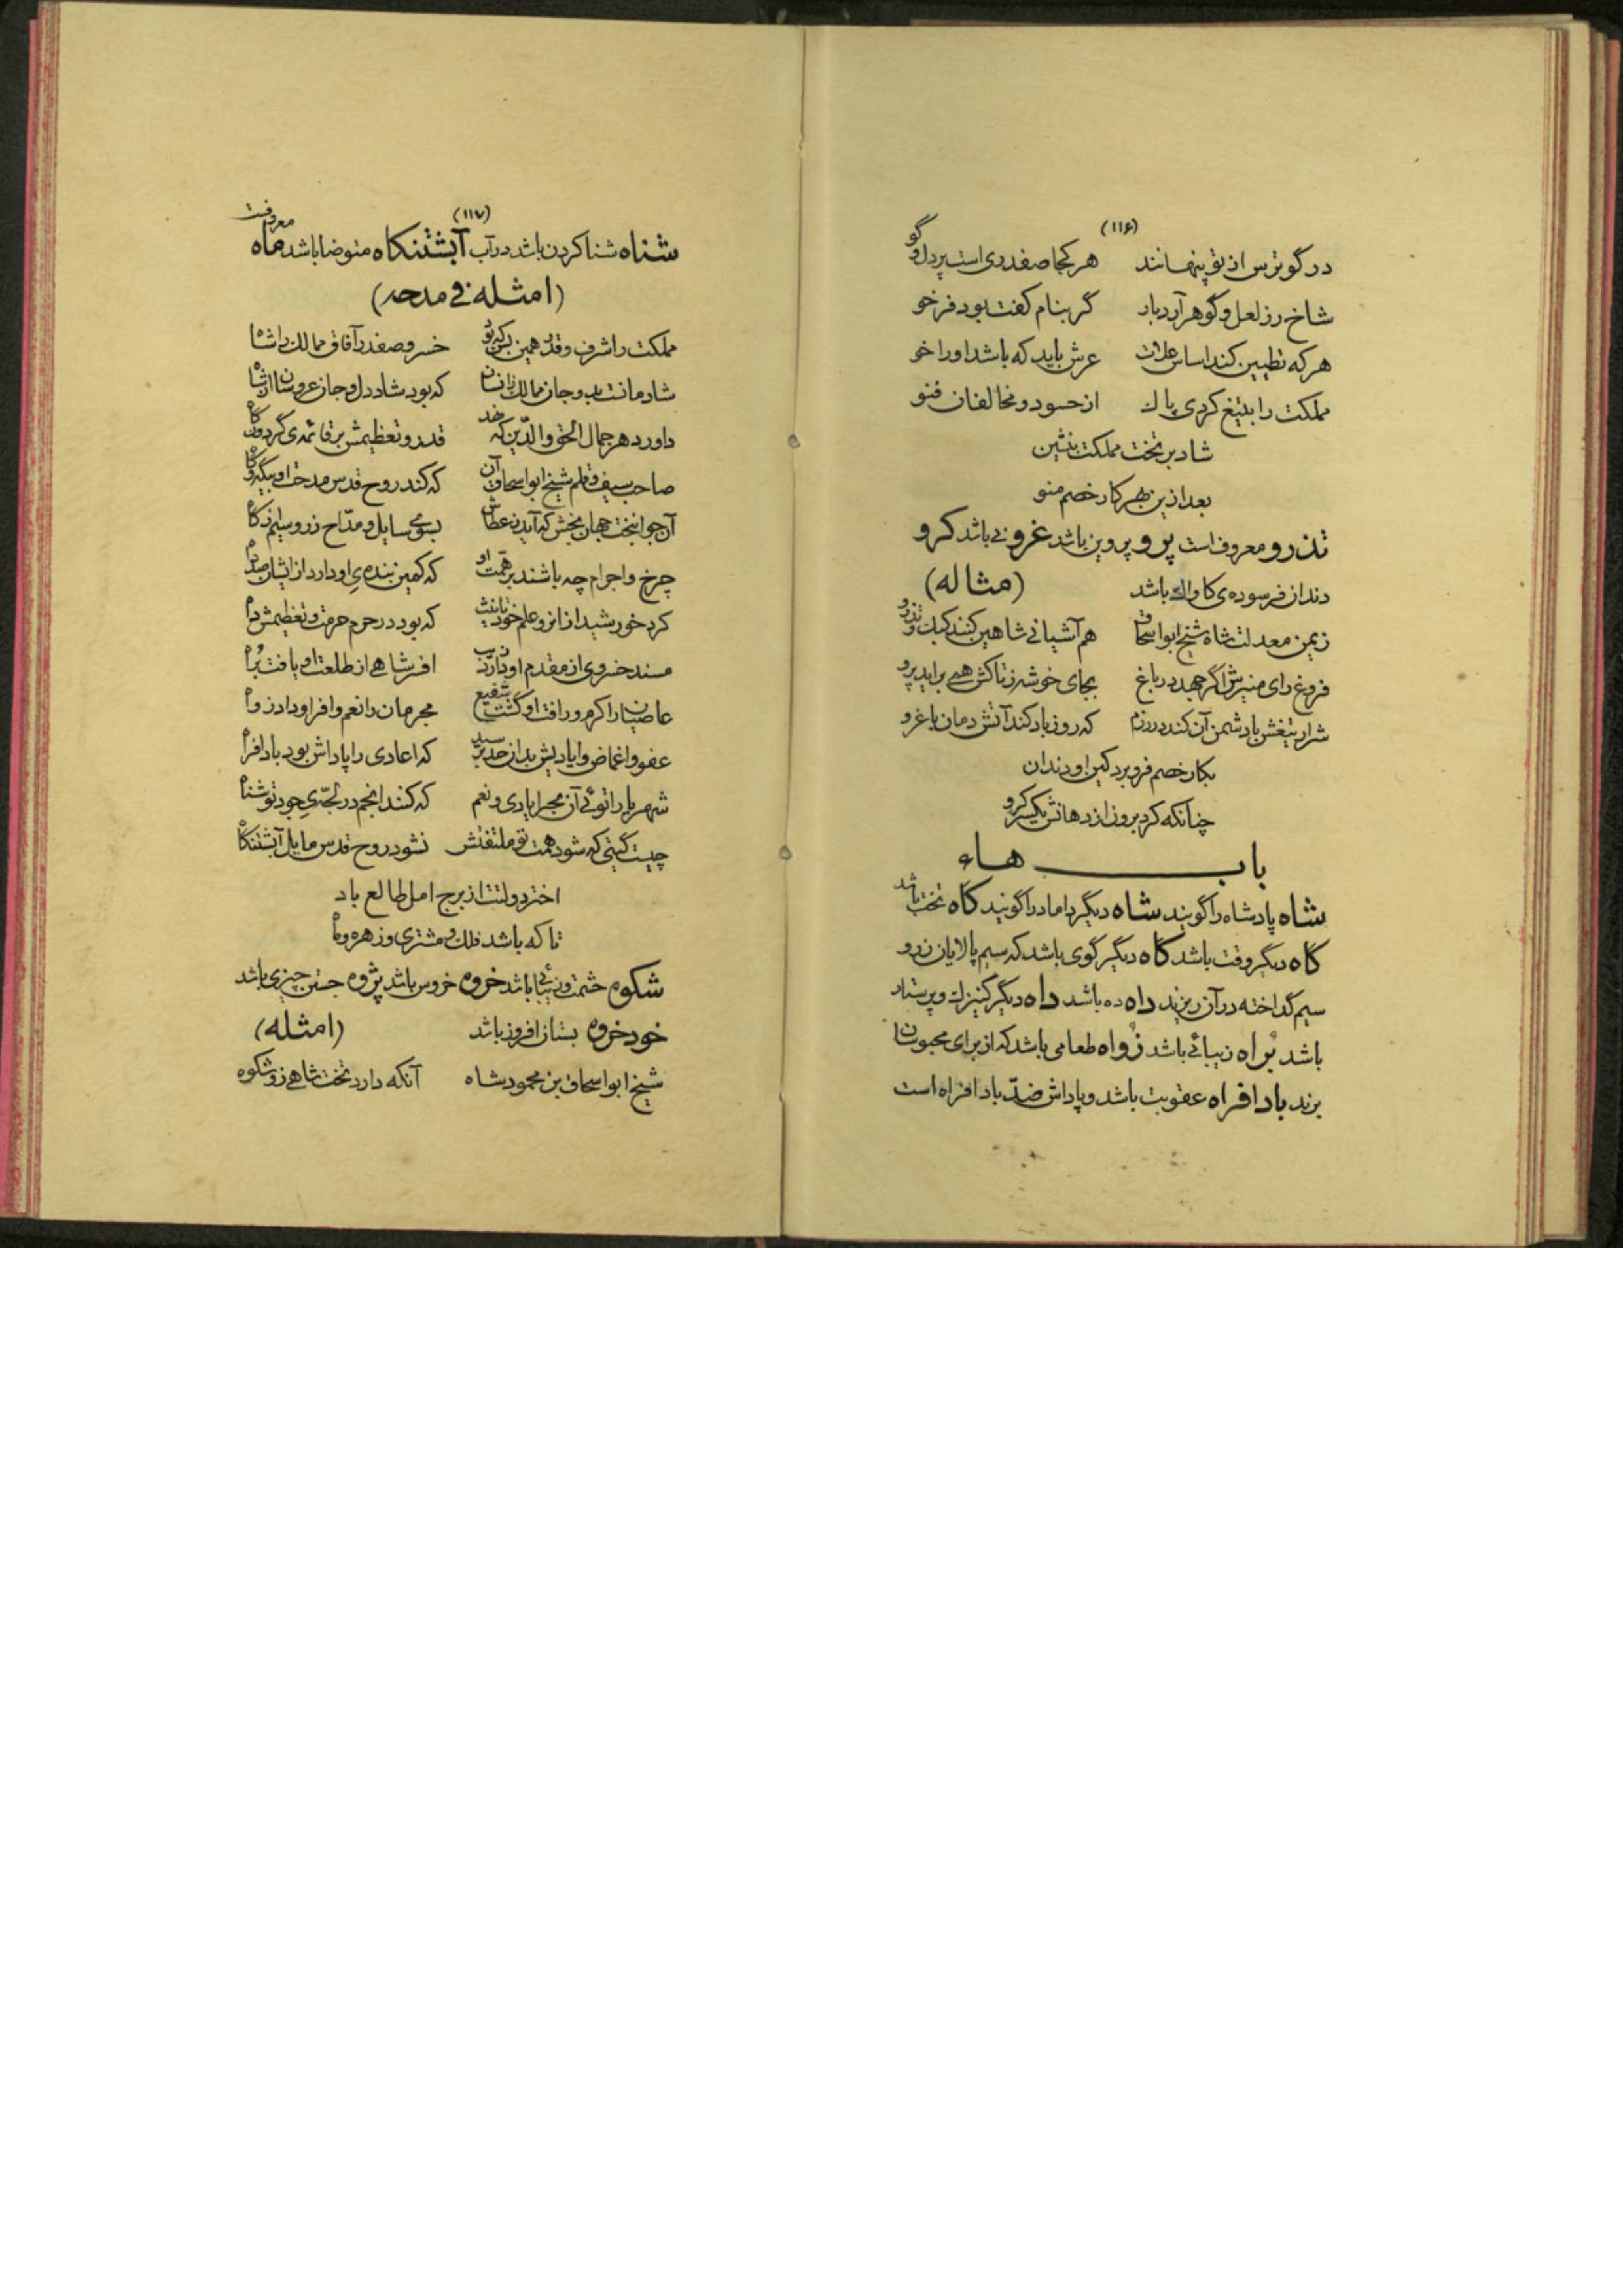 (۱۱۶)
در گو ترس از تو پنهانند هر کجا صفدری است پردل و گو
شاخ رز لعل و گوهر آرد بار گر بنام کفت بود فرخو
هر که تطیین کند اساس علات عرش باید که باشد او را خو
مملکت را بتیغ کردی پاک از حسود و مخالفان فنو
شاد بر تخت مملکت بنشین
بعد ازین بهر کار خصم منو
تذرو معروف است پرو پروین باشد غرو نی باشد کرو
دندان فرسوده‌ی کاواک باشد (مثاله)
زیمن معدلت شاه شیخ ابو اسحاق هم آشیانی شاهین کنند کبک و تذرو
فروغ رای منیرش اگر جهد در باغ بجای خوشه ز تاکش همی براید پرو
شرار تیغش با دشمن آن کند در رزم که روز باد کند آتش دمان با غرو
بکار خصم فرو برد کین او دندان
چنانکه کرد برون از دهانش یکسر کرو
باب هاء
شاه پادشاه را گویند شاه دیگر داماد را گویند کاه تخت باشد
کاه دیگر وقت باشد کاه دیگر گوی باشد که سیم پالایان زر و
سیم گداخته در آن ریزند داه ده باشد داه دیگر کنیزک و پرستار
باشد بُراه زیبائی باشد زُواه طعامی باشد که از برای محبوسان
برند باد افراه عقوبت باشد و پاداش ضدّ باد افراه است
(۱۱۷)
شناه شنا کردن باشد در آب آبشتنکاه متوضا باشد ماه معروفست
(امثله فی مدحه)
مملکت را شرف و قدر همین بس که تو خسرو صفدر آفاق ممالک را شاه
شادمانست و جان ممالک که بود شاد دل و جان عروسان از شاه
داور دهر جمال الحق والدّین که نهد قدر و تعظیمش بر قائمه‌ی گردون کاه
صاحب سیف و قلم شیخ ابو اسحاق آن که کند روح قدس مدحت او بیگه و کاه
آن جوانبخت جهان بخش که آید ز عطاش بسوی سایل و مدّاح زر و سیم ز کاه
چرخ و اجرام چه باشند بر همّت او که کمین بنده‌ی او دارد از ایشان صد داه
کرد خورشید از انرو علم خود که بود در حرم حرمت و تعظیمش داه
مسند خسروی از مقدم او زیب افسر شاهی از طلعت او یافت بُراه
عاصیان را کرم و رافت او گشت شفیع مجرمان را نعم وافر او داد زواه
عفو و اغماض و ایادیش بدان حد برسید که اعادی را پاداش بود باد افراه
شهریارا توئی آن بحر ایادی و نعم که کنند انجم در لجّه‌ی جود تو شناه
چیست گیتی که شود همت تو ملتفتش نشود روح قدس مایل آبشتنکاه
اختر دولتت از برج امل طالع باد
تا که باشد فلک و مشتری و زهره و ماه
شکوه حشمت و زیبائی باشد خروه خروس باشد پژوه جستن چیزی باشد
خود خروه بستان افروز باشد (امثله)
شیخ ابو اسحاق بن محمود شاه آنکه دارد تخت شاهی زو شکوه